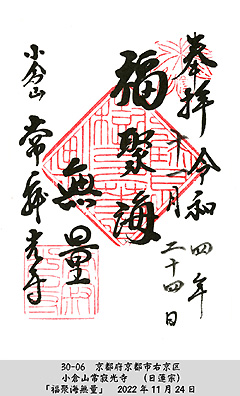 奉拝 令和四年
十一月二十四日
福聚海
無量
小倉山
常寂光寺
30-06 京都府京都市右京区
小倉山常寂光寺 (日蓮宗)
「福聚海無量」 2022年11月24日